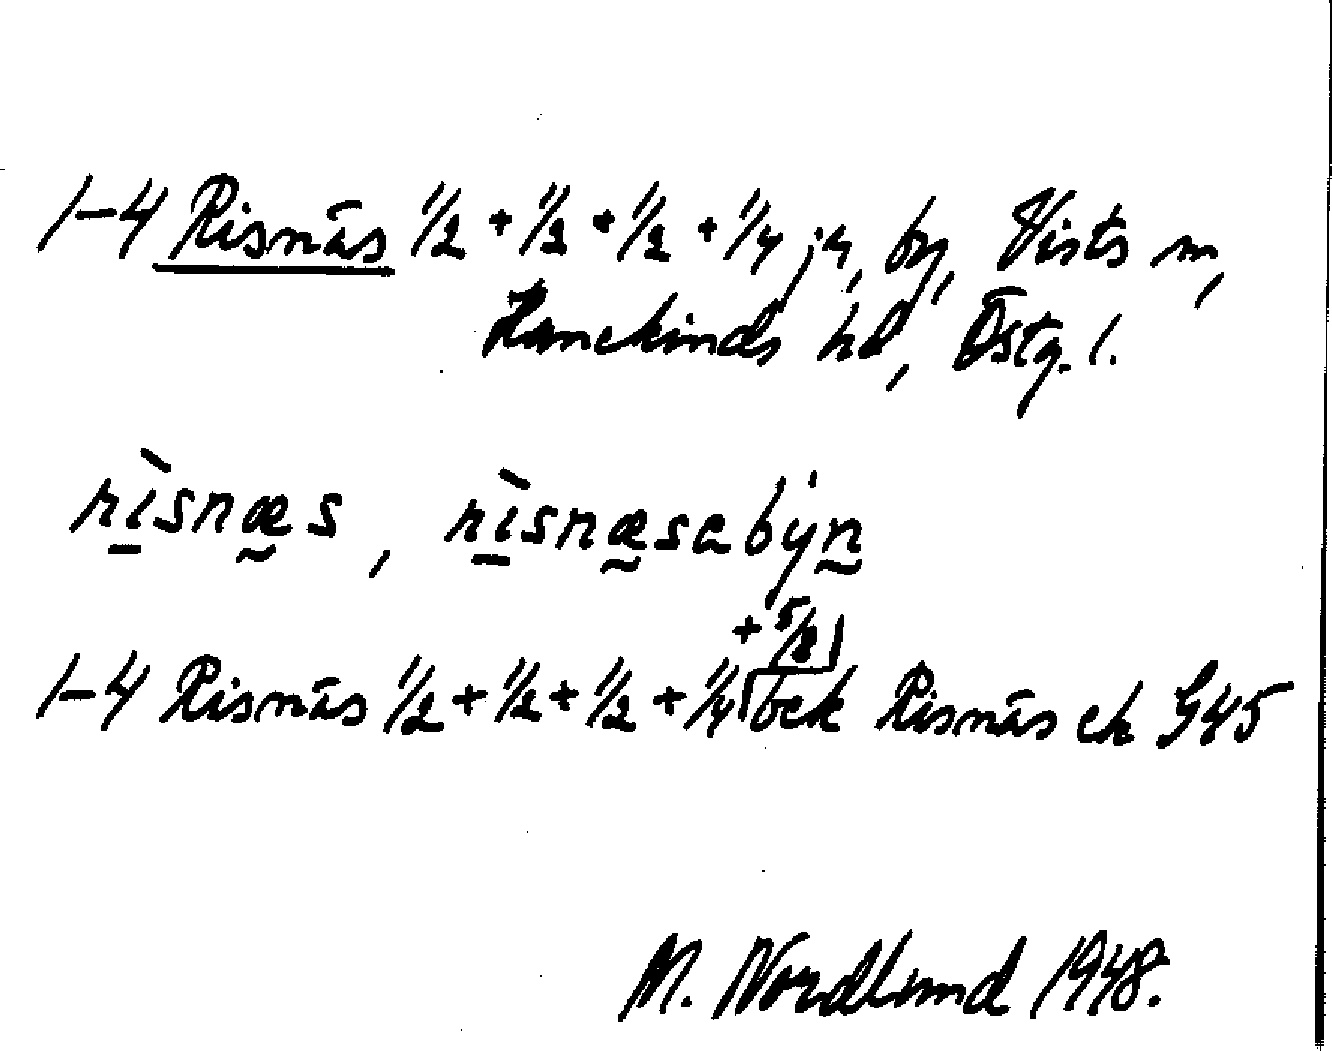 1-4 Risnäs 1/2 + 1/2 + 1/2 + 1/4 jq, by, Vists sn,
Hanekinds hd, Östg. l.
rìsnæs, rìsnæsabýn
+ 5/8
1-4 Risnäs 1/2 + 1/2 + 1/2 + 1/4 bek Risnäs ek G45
M. Nordlund 1948.